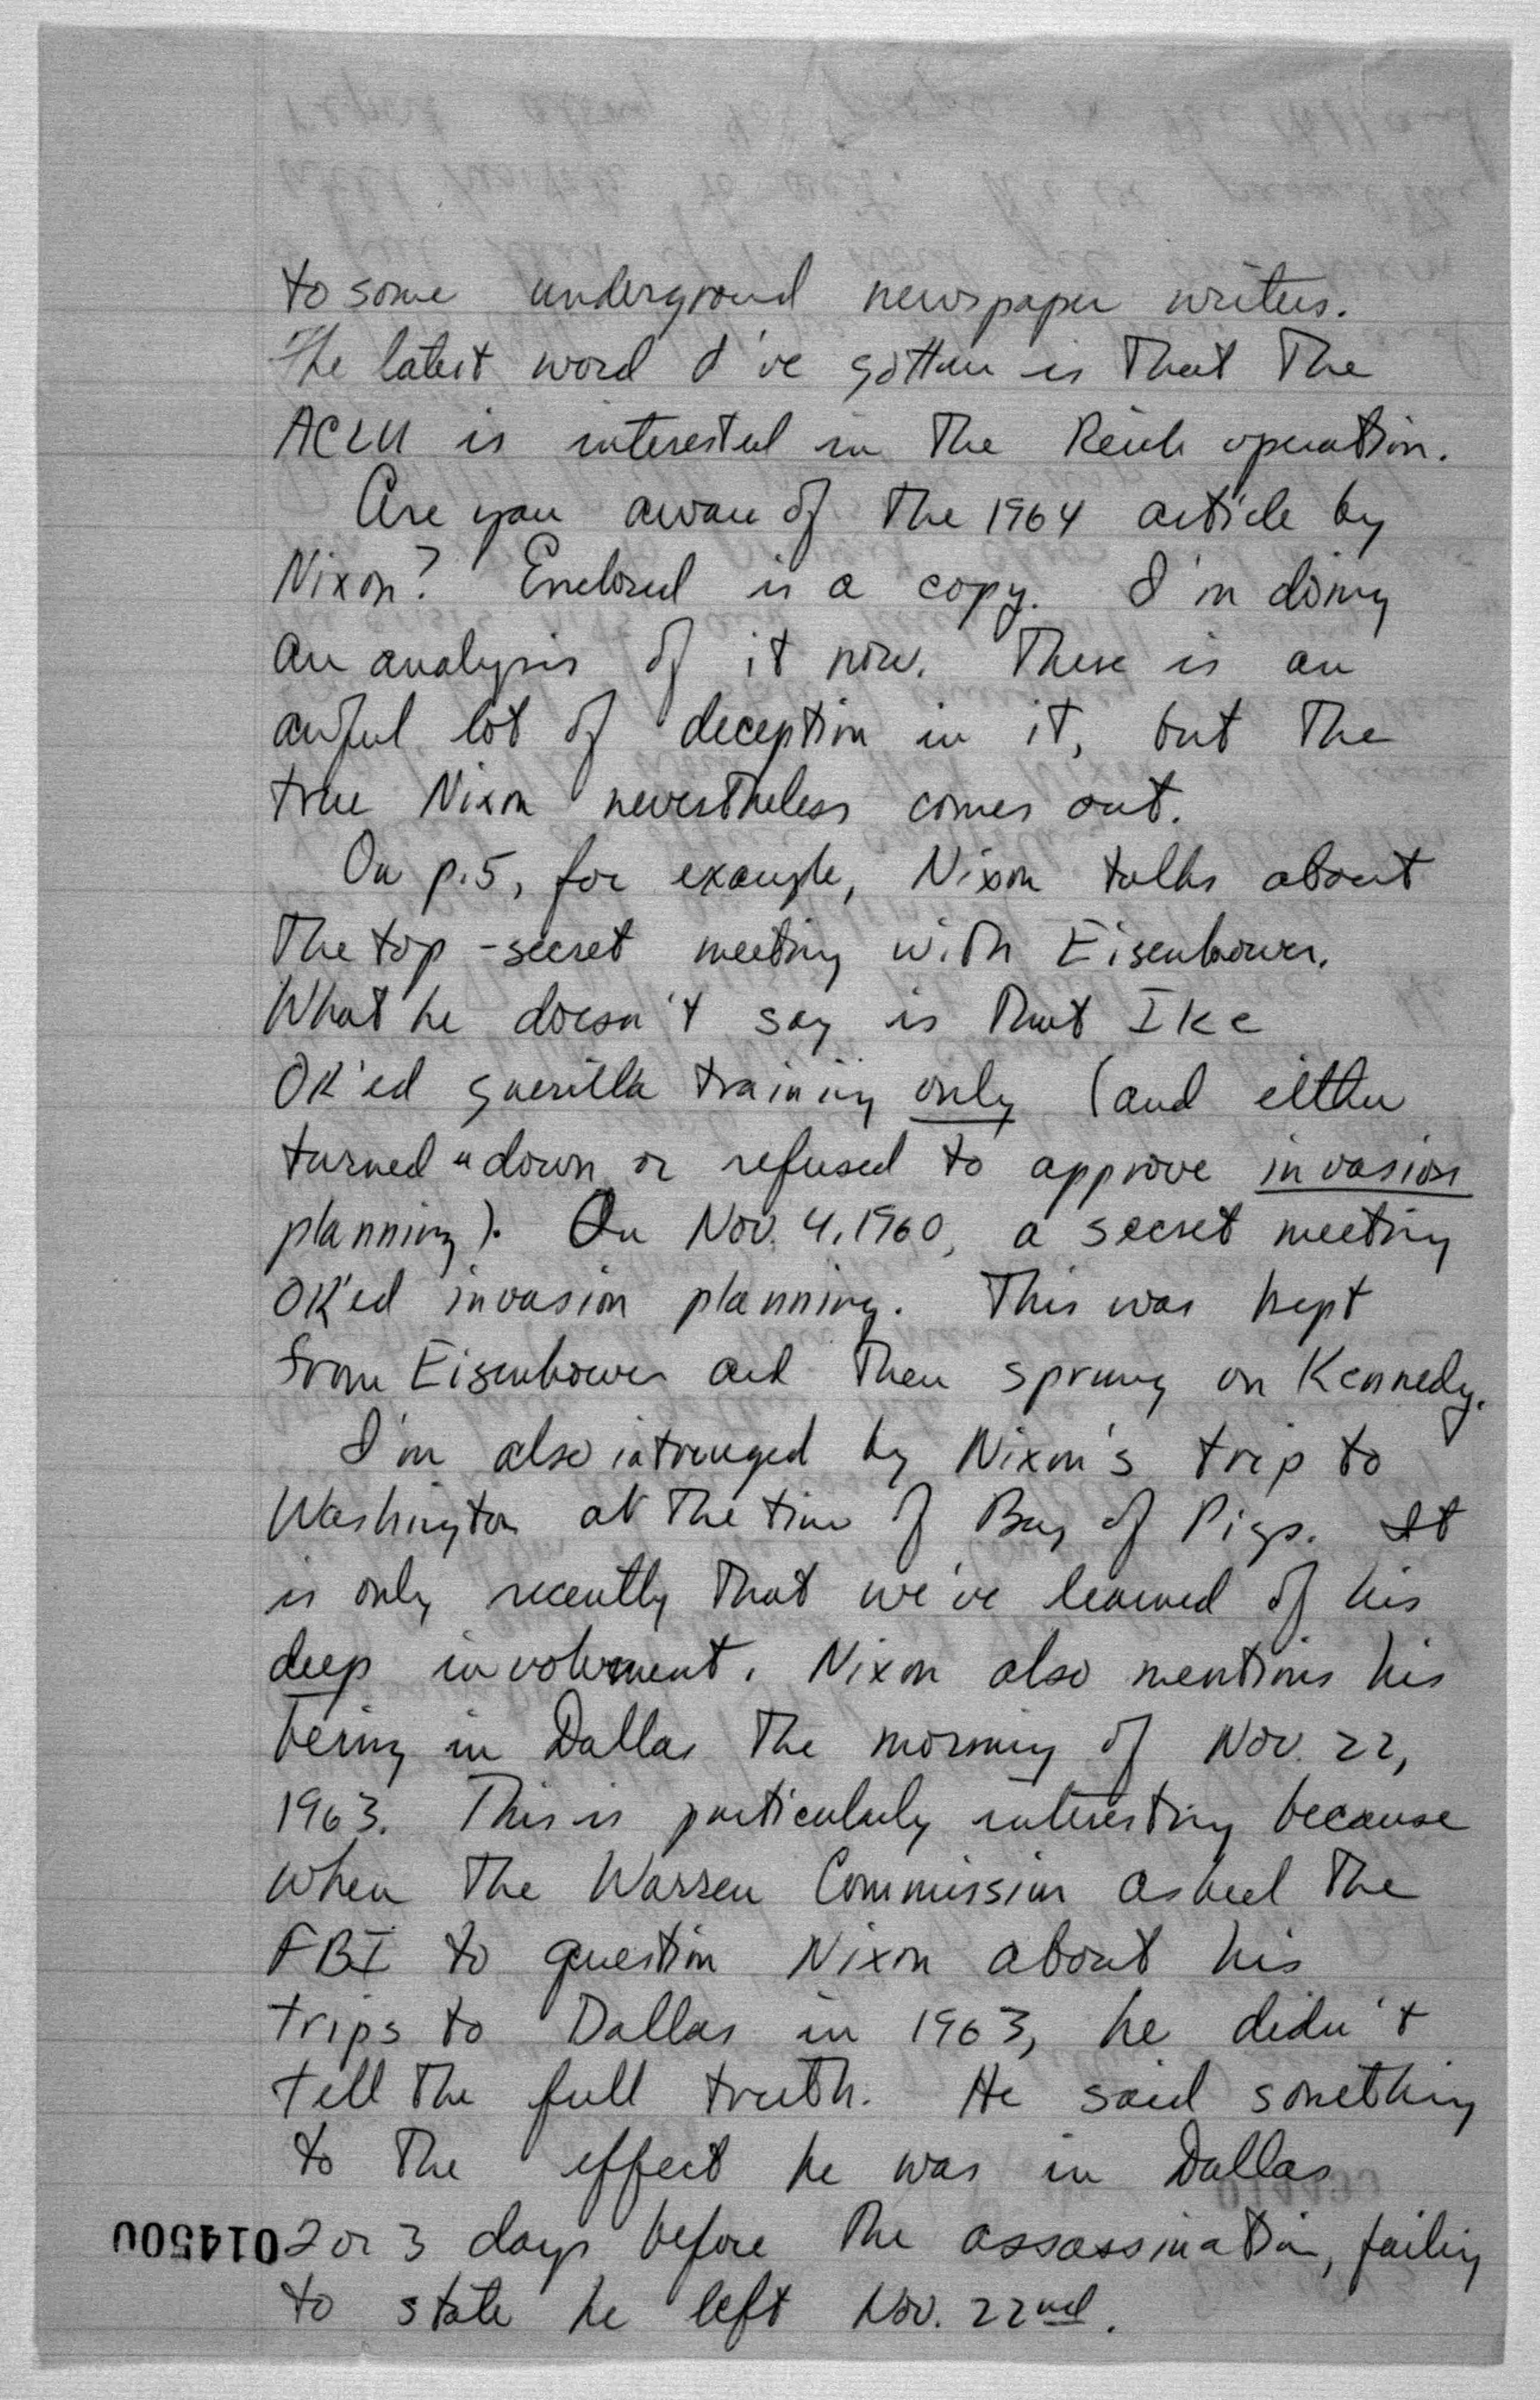 to some underground newspaper writers.
The latest word I've gotten is that the
ACLU is interested in the Reich operation.
Are you aware of the 1964 article by
Nixon? Enclosed is a copy. I'm doing
an analysis of it now. There is an
awful lot of deception in it, but the
true Nixon nevertheless comes out.
On p.5, for example, Nixon talks about
the top-secret meeting with Eisenhower.
What he doesn't say is that Ike
OK'ed guerilla training only (and either
turned down or refused to approve invasion
planning). On Nov. 4, 1960, a secret meeting
OK'ed invasion planning. This was kept
from Eisenhower and then sprung on Kennedy.
I'm also intrigued by Nixon's trip to
Washington at the time of Bay of Pigs. It
is only recently that we've learned of his
deep involvement. Nixon also mentions his
being in Dallas the morning of Nov. 22,
1963. This is particularly interesting because
when the Warren Commission asked the
FBI to question Nixon about his
trips to Dallas in 1963, he didn't
tell the full truth. He said something
to the effect he was in Dallas
2 or 3 days before the assassination, failing
to state he left Nov. 22nd.
014500